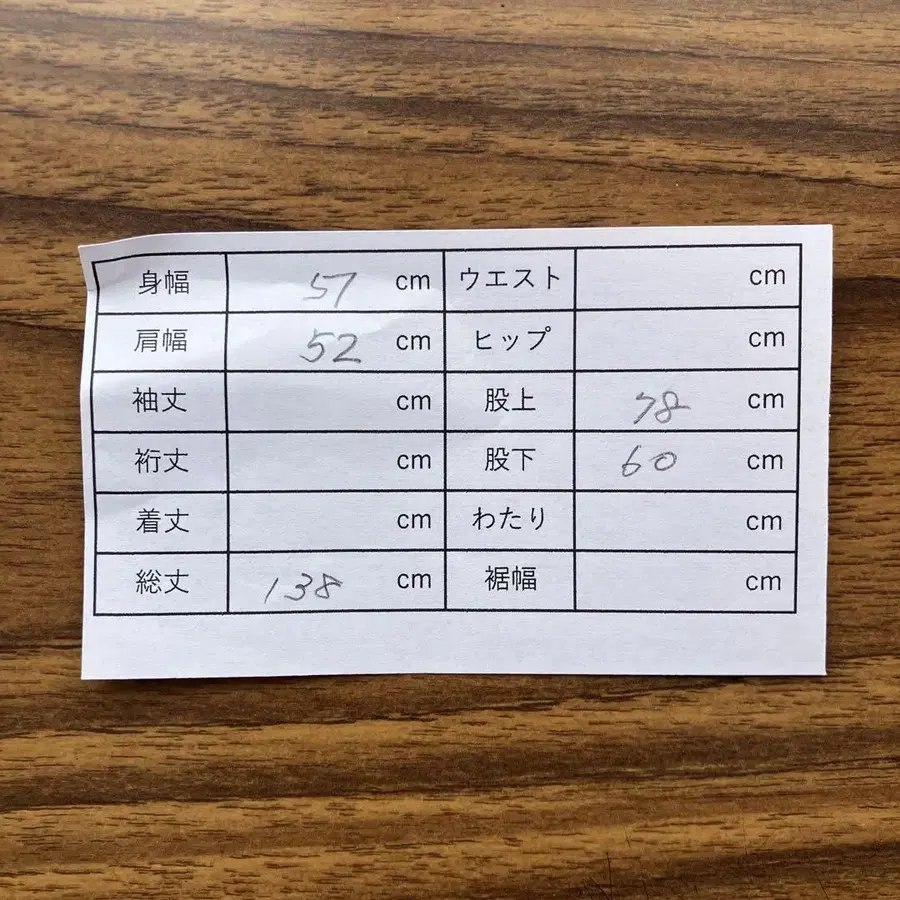 身幅 57 cm ウエスト cm
肩幅 52 cm ヒップ cm
袖丈 cm 股上 78 cm
裄丈 cm 股下 60 cm
着丈 cm わたり cm
総丈 138 cm 裾幅 cm